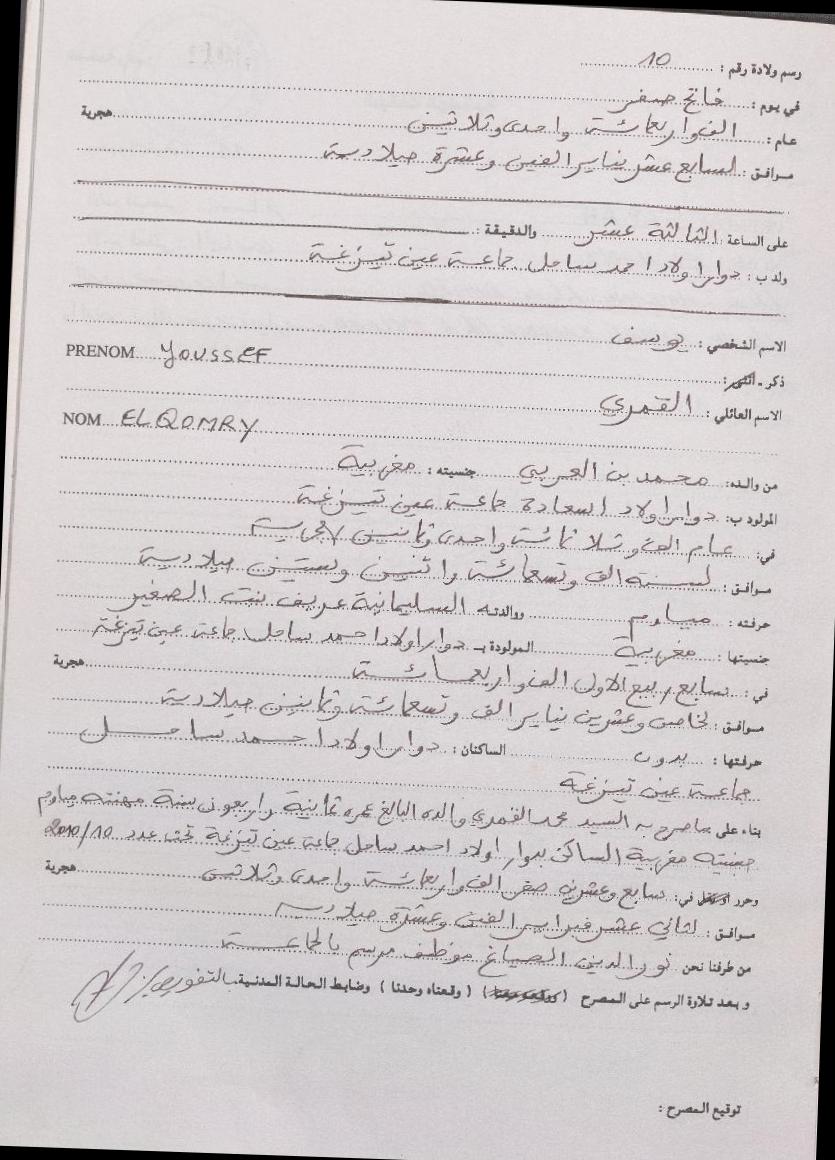 رسم ولادة رقم : 10
في يوم : فاتح صفر
عام : الف واربعمائة واحدى وثلاثين هجرية
موافق : لسابع عشر يناير الفين وعشرة ميلادية
على الساعة الثالثة عشر والدقيقة :
ولد ب : دوار اولاد احمد ساحل جماعة عين تيزغة
الاسم الشخصي : يوسف
PRENOM YOUSSEF
ذكر - أنثى :
الاسم العائلي : القمري
NOM ELQOMRY
من والده : محمد بن العربي جنسيته : مغربية
المولود ب : دوار اولاد السعادة جماعة عين تيزغة
في : عام الف وثلاثمائة واحدى وثمانين هجرية
موافق : لسنة الف وتسعمائة واثنين وستين ميلادية
حرفته : مياوم ووالدته السليمانية عريف بنت الصغير
جنسيتها : مغربية المولودة بـ دوار اولاد احمد ساحل جماعة عين تيزغة
في : سابع ربيع الاول الف واربعمائة هجرية
موافق : لخامس وعشرين يناير الف وتسعمائة وثمانين ميلادية
حرفتها : بدون الساكنان : دوار اولاد احمد ساحل
جماعة عين تيزغة
بناء على ماصرح به السيد محمد القمري والده البالغ عمره ثمانية واربعون سنة مهنته مياوم
جنسيته مغربية الساكن بدوار اولاد احمد ساحل جماعة عين تيزغة تحت عدد 2010/10
وحرر في : سابع وعشرين صفر الف واربعمائة واحدى وثلاثين هجرية
موافق : لثاني عشر فبراير الفين وعشرة ميلادية
من طرفنا نحن نور الدين الصياغ موظف مرسم بالجماعة
و بعد تلاوة الرسم على المصرح ( وقعناه وحدنا ) وضابط الحالة المدنية بالتفويض
توقيع المصرح :